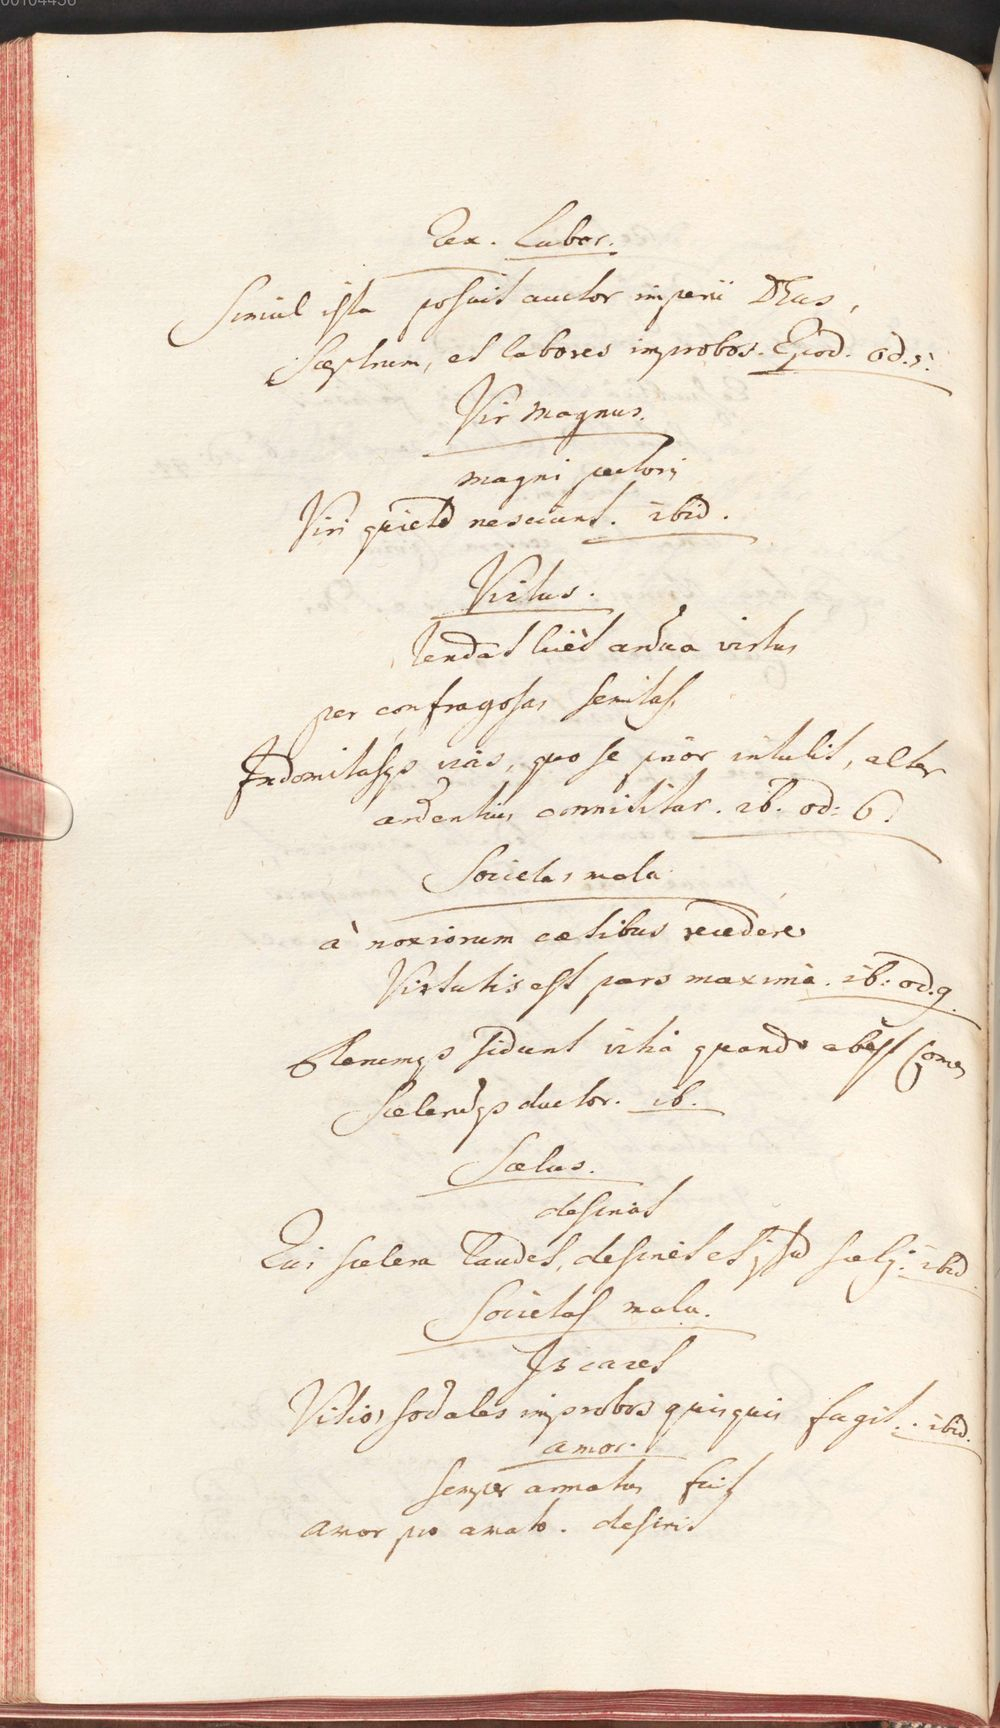 00104436
Rex. Labor.
Simul ista posuit auctor imperii DEus,
Sceptrum, et labores improbos. Epod. od. 5.
Vir magnus.
magni pectoris
Viri quietem nesciunt. ibid.
Virtus.
Tendat licet ardua virtus
per confragosas semitas,
Indomitasque vias, quo se prior intulit, alter
ardentius connititur. ib. od: 6.
Societas mala
à noxiorum cœtibus recedere
Virtutis est pars maxima. ib: od. 9.
Plerumque sidunt vitia quando abest Comes
Scelerumque ductor. ib.
Scelus.
desinat
Cui scelera laudes, desinet et ipsum scelus. ibid
Societas mala.
Is caret
Vitio, sodales improbos quisquis fugit. ibid.
amor.
semper armatus fuit
amor pro amato. desirit